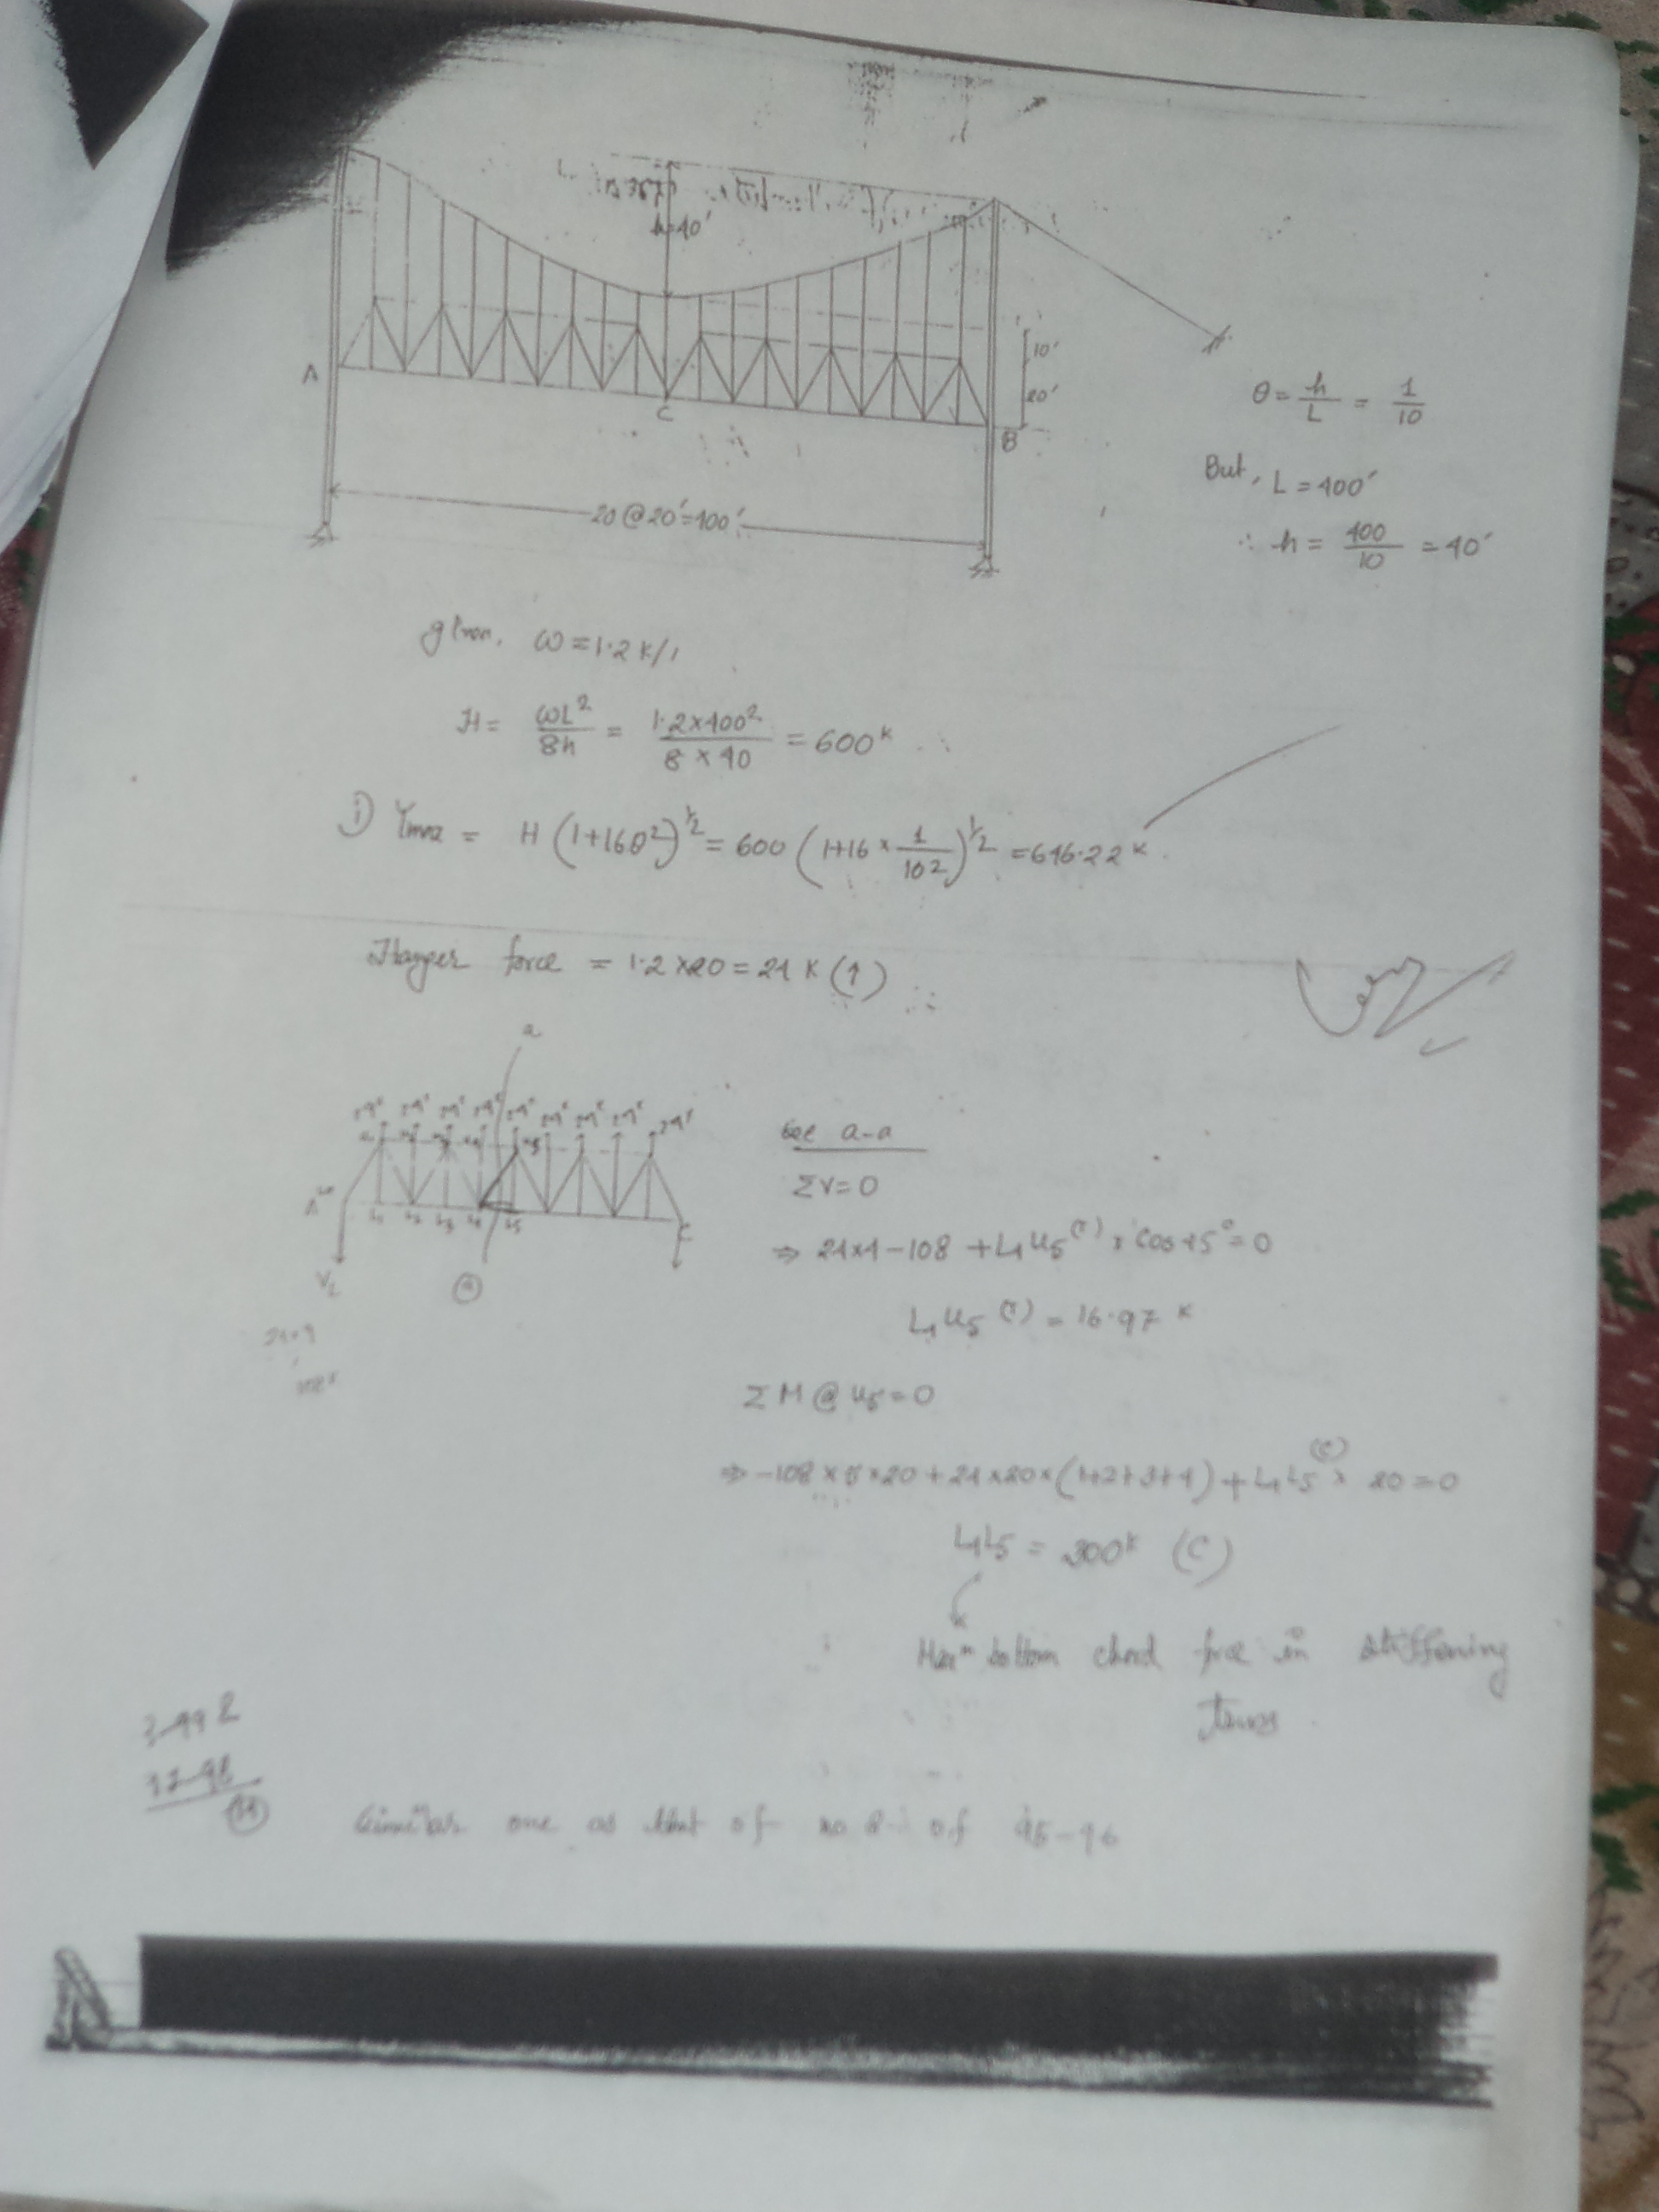 h=40'
A
C
B
10'
20'
20@20'=400'
θ = h/L = 1/10
But, L = 400'
∴ h = 400/10 = 40'
given, ω = 1.2 k/'
H = ωL²/8h = 1.2×400²/8×40 = 600 k
① Tmax = H (1+16θ²)^1/2 = 600 (1+16 × 1/10²)^1/2 = 646.22 k.
Hanger force = 1.2×20 = 24 k (↑)
a
A
L1 L2 L3 L4 L5
C
VL
a
Sec a-a
ΣV=0
⇒ 24×4 - 108 + L4U5(T) × cos 45° = 0
L4U5 (T) = 16.97 k
ΣM @ U5 = 0
⇒ -108×5×20 + 24×20×(1+2+3+4) + L4L5(C) × 20 = 0
L4L5 = 300k (C)
Maxm bottom chord force in stiffening
Truss.
Similar one as that of no of 95-96